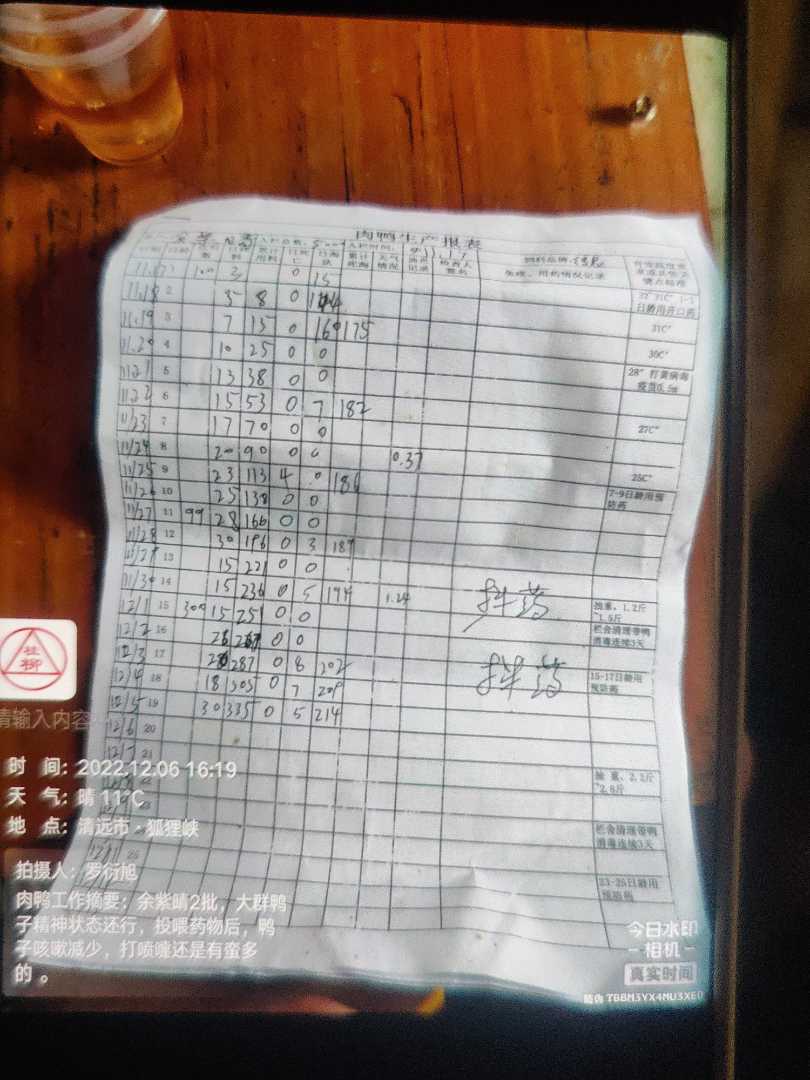 肉鸭生产报表
日期 日龄 日死亡 日淘汰 天气情况 饲料品牌
免疫、用药情况记录
11.17 100 3 0 15
11.18 2 5 8 0
32°31C° 1-3
日龄用开口药
11.19 3 7 15 0 160 175
31C°
11.20 4 10 25 0 0
30C°
11.21 5 13 38 0 0
28° 打黄病毒
疫苗0.5
6 15 53 0 7 182
11/23 7 17 70 0 0
27C°
11/24 8 20 90 0 0 0.37
11/25 9 23 113 4 0 186
25C°
11/26 10 25 138 0 0
7-9日龄用预
防药
11/27 11 99 28 166 0 0
11/28 12 30 196 0 3 189
11/29 13 15 221 0 0
11/30 14 15 236 0 5 194 1.24
拌药
抽重,1.2斤
~1.5斤
12/1 15 300 15 251 0 0
12/2 16 0 0
栏舍清理带鸭
消毒连续3天
12/3 17 287 0 8 202
拌药
12/4 18 18 305 0 7 209
15-17日龄用
预防药
12/5 19 30 335 0 5 214
12/6 20
12/7 21
抽重,2.2斤
~2.6斤
栏舍清理带鸭
消毒连续3天
23-25日龄用
预防药
桂柳
请输入内容
时 间:2022.12.06 16:19
天 气:晴 11℃
地 点:清远市·狐狸峡
拍摄人:罗衍旭
肉鸭工作摘要:余紫晴2批,大群鸭
子精神状态还行,投喂药物后,鸭
子咳嗽减少,打喷嚏还是有蛮多
的。
今日水印
-相机-
真实时间
防伪 TBBM3YX4MU3XE0